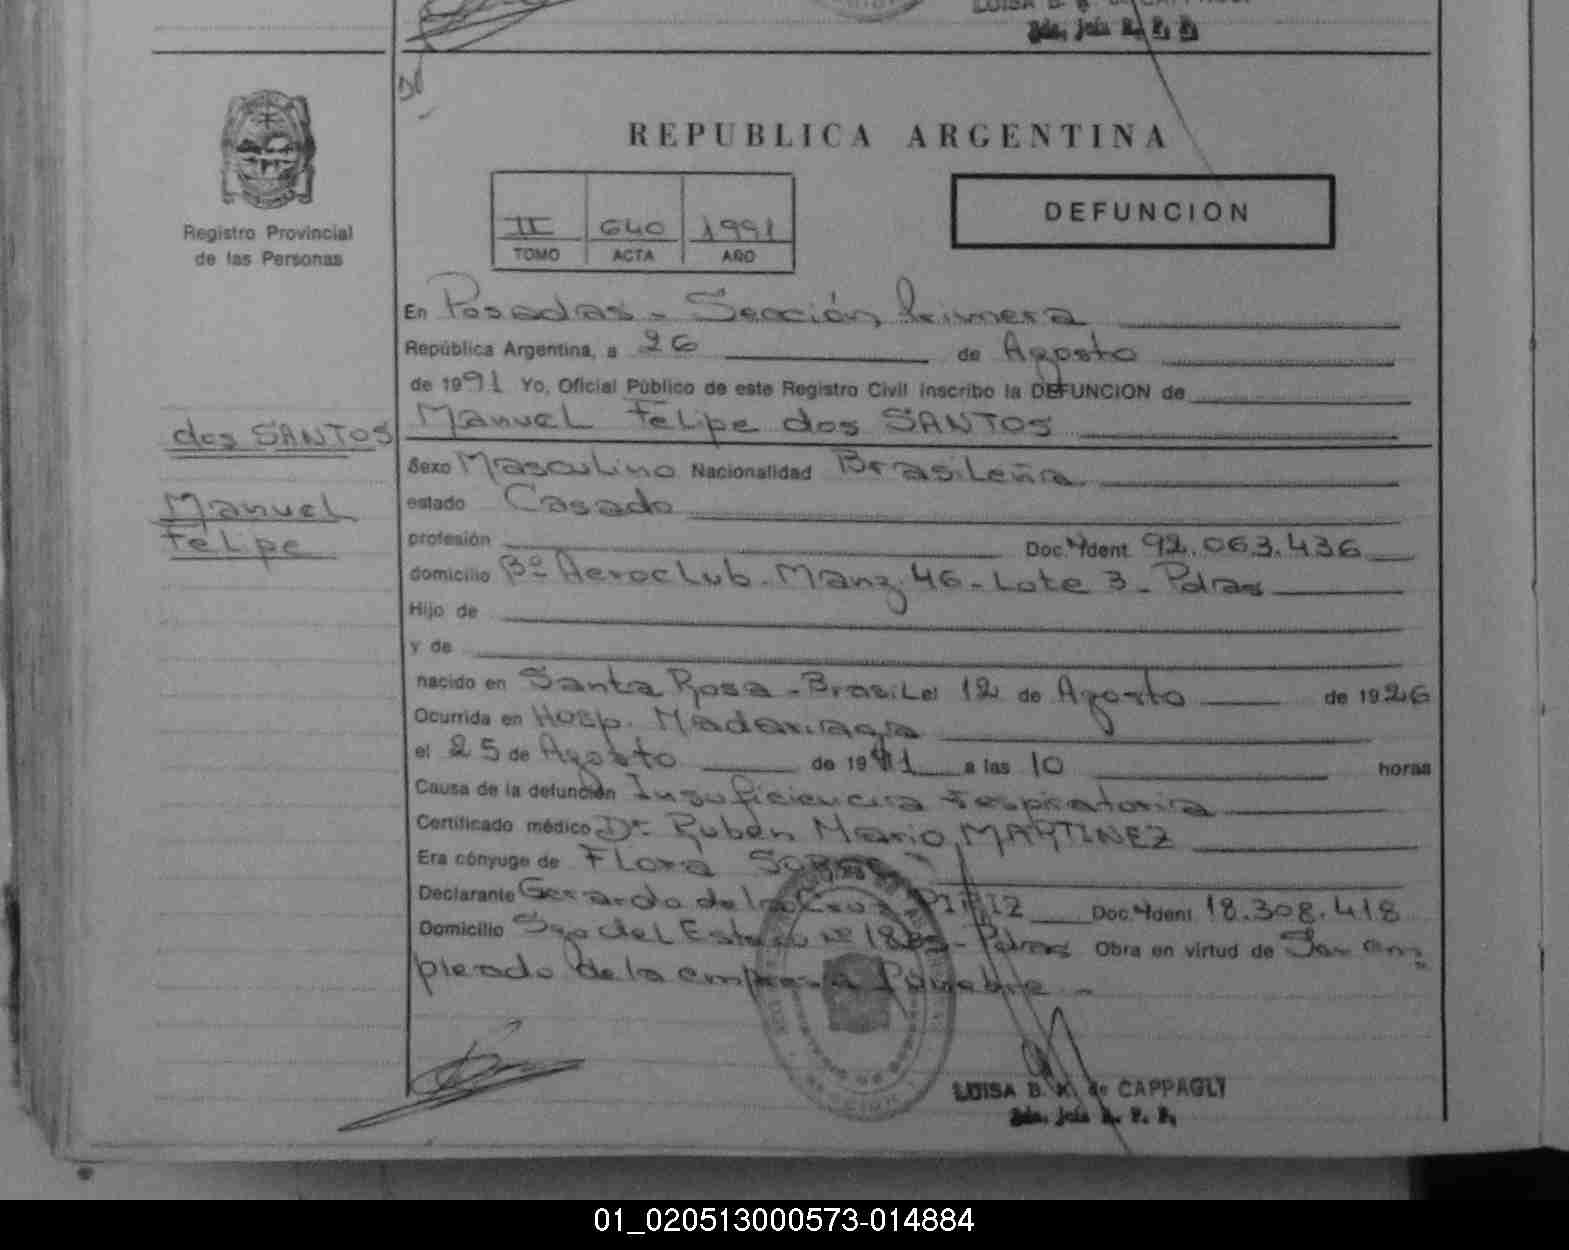 LUISA B. K. de CAPPAGLY
2da. Jefa R. P. P.
REPUBLICA ARGENTINA
Registro Provincial
de las Personas
II 640 1991
TOMO ACTA AÑO
DEFUNCION
En Posadas - Sección Primera
República Argentina, a 26 de Agosto
de 1991 Yo, Oficial Público de este Registro Civil inscribo la DEFUNCION de
Manuel Felipe dos SANTOS
dos SANTOS
Manuel
Felipe
Sexo Masculino Nacionalidad Brasileña
estado Casado
profesión Doc. Ident. 92.063.436
domicilio Bº Aeroclub - Manz. 46 - Lote 3 - Pdas
Hijo de
y de
nacido en Santa Rosa - Brasil el 12 de Agosto de 1926
Ocurrida en Hosp. Madariaga
el 25 de Agosto de 1991 a las 10 horas
Causa de la defunción Insuficiencia respiratoria
Certificado médico Dr. Ruben Mario MARTINEZ
Era cónyuge de Flora
Declarante Gerardo de la Cruz Doc. Ident. 18.308.418
Domicilio Sgo del Estero Nº - Pdas Obra en virtud de Ser em
pleado de la empresa
LUISA B. K. de CAPPAGLY
2da. Jefa R. P. P.
01_020513000573-014884